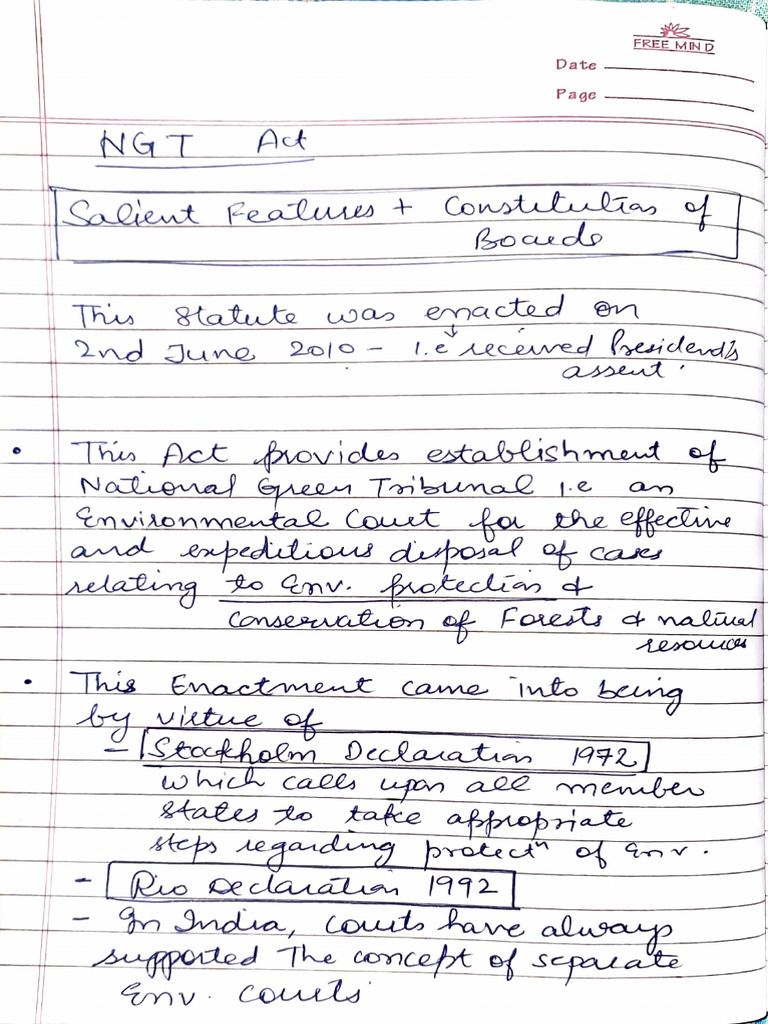 FREE MIND
Date
Page
NGT Act
Salient Features + Constitution of
Boards
This statute was enacted on
2nd June 2010 - i.e received President's
assent.
• This Act provides establishment of
National Green Tribunal i.e an
Environmental Court for the effective
and expeditious disposal of cases
relating to Env. protection &
conservation of Forests & natural
resources
• This Enactment came into being
by virtue of
- Stockholm Declaration 1972
which calls upon all member
states to take appropriate
steps regarding protectⁿ of Env.
- Rio Declaration 1992
- In India, courts have always
supported The concept of separate
Env. courts